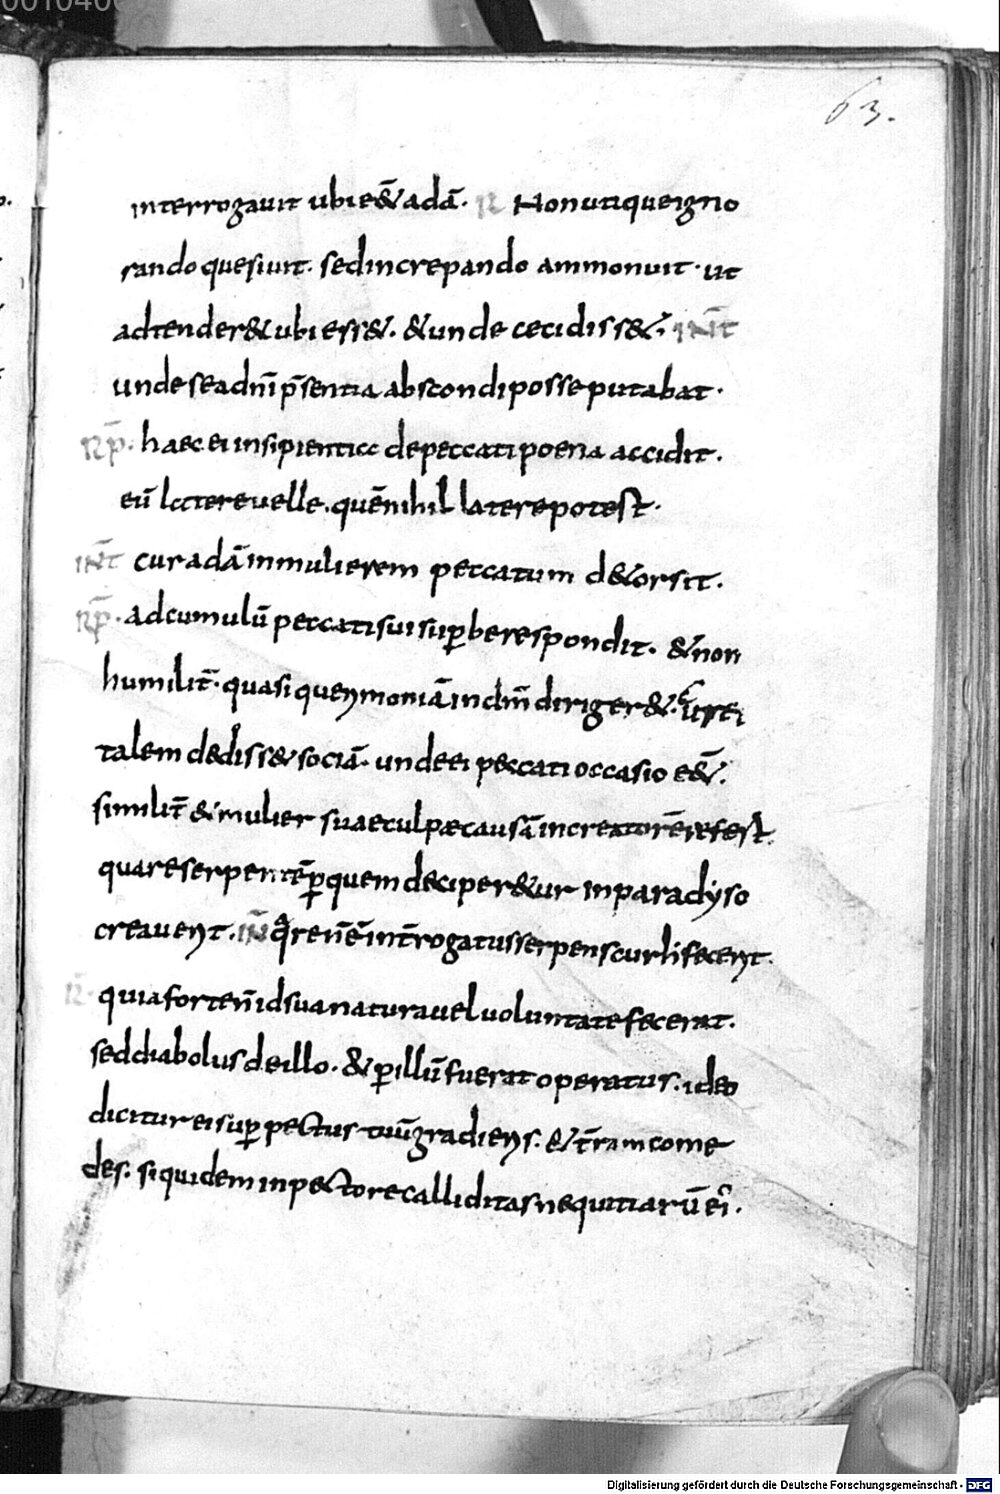 0010400
63.
interrogauit ubi e&̄ adā. R Non utique igno
rando quesiuit. sed increpando ammonuit. ut
adtender& ubi ess&. & unde cecidiss&. INT̄
unde se ad dn̄i p̄sentia abscondi posse putabat.
Rp̄. haec ei insipientia de peccati poena accidit.
eū latere uelle. quē nihil latere potest.
INT̄ cur adā in mulierem peccatum d&orsit.
Rp̄. ad cumulū peccati sui sup̱be respondit. & non
humilit̄. quasi querymoniā in dn̄m diriger&.
talem dediss& sociā. unde ei peccati occasio e&̄.
similit̄ & mulier suae culpæ causā in creatorē refert.
quare serpentē p̱ quem deciper&ur in paradyso
creauerit. IN̄ q̄re n̄ ē int̄rogatus serpens cur h fecerit.
R̄. quia forte n̄ id sua natura uel uoluntate fecerat.
sed diabolus de illo. & p̱ illū fuerat operatus. ideo
dicitur ei sup̱ pectus tuū gradieris. & t̄ram come
des. siquidem in pectore calliditas nequitiarū ei.
Digitalisierung gefördert durch die Deutsche Forschungsgemeinschaft - DFG